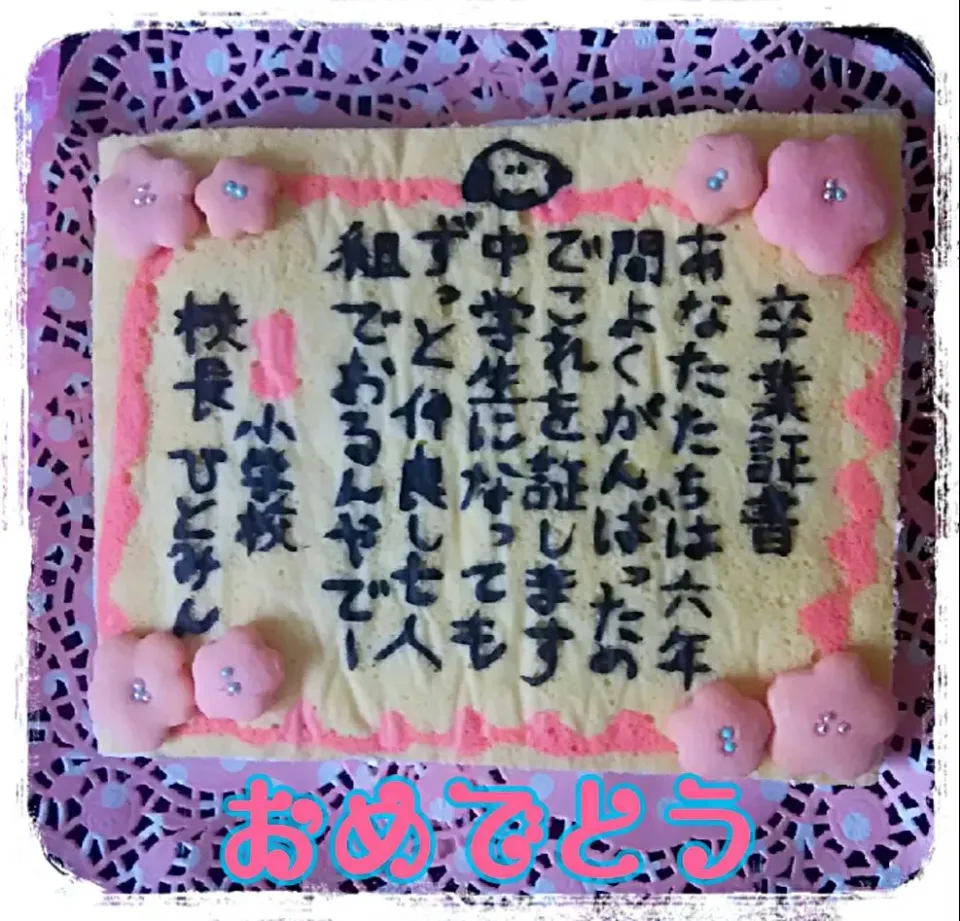 卒業証書
あなたたちは六年
間よくがんばったの
でこれを証します
中学生になっても
ずっと仲良し七人
組でおるんやでー
小学校
校長 ひとみん
おめでとう